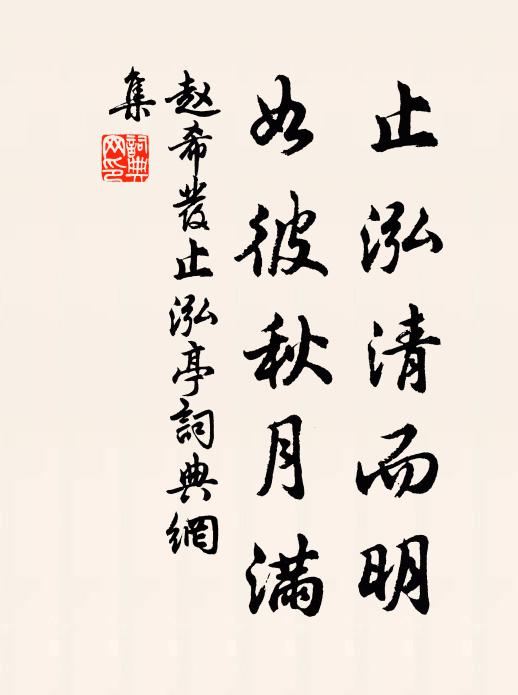 止泓清而明
如彼秋月满
赵希發止泓亭詞典網
集
詞典
网印